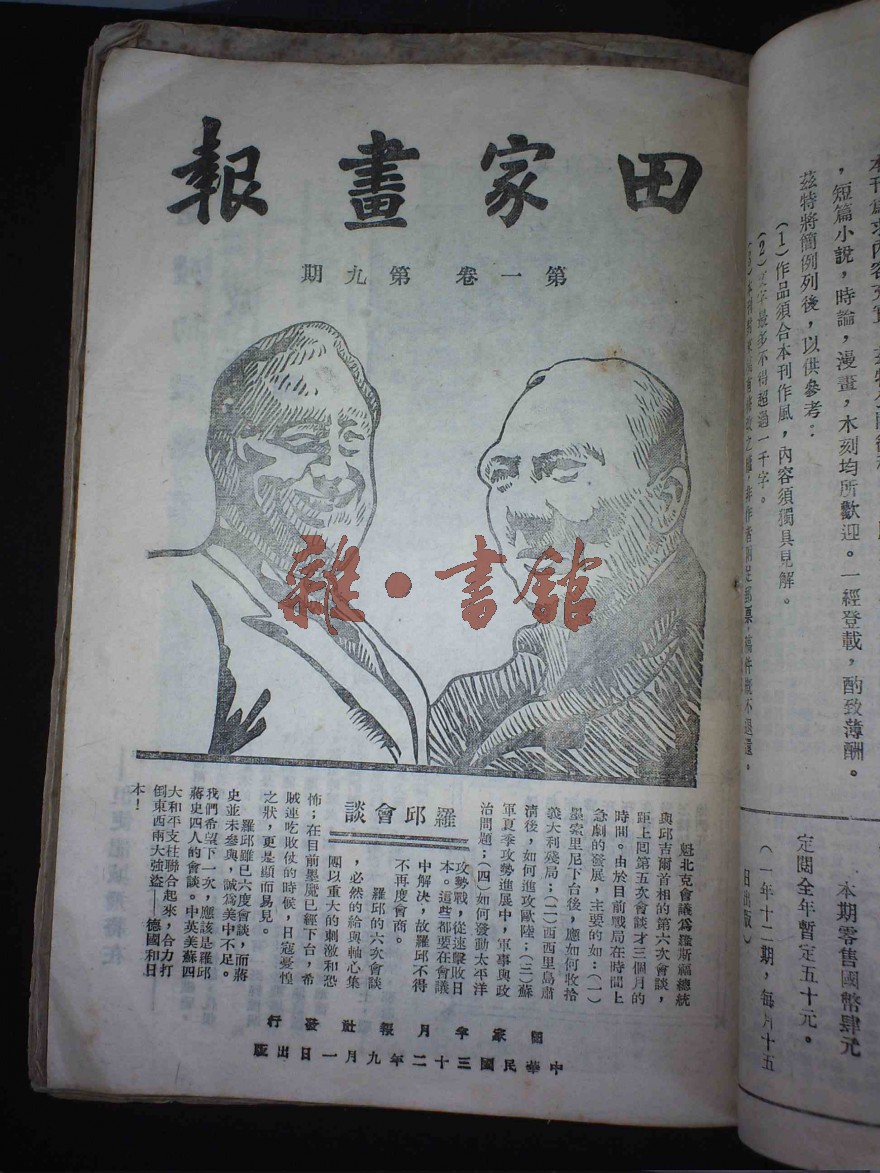 田家畫報
第一卷 第九期
雜·書館
羅邱會談
魁北克會議為羅斯福總統
與邱吉爾首相的第六次會談,
距上回第五次會談才三個月的
時間。由於目前戰局在時間上
急劇的發展,主要的如:(一)
墨索里尼下台後,應如何收拾
義大利殘局;(二)西西里島肅
清後,如何進攻歐陸;(三)蘇
軍夏季攻勢進展中,軍事與政
治問題;(四)如何發動太平洋
攻勢戰,從速擊敗日
本。這些都要在會議
中解決,故羅邱不得
不再度會商。
羅邱的六次會談
,必然的給與軸心集
團以重大的刺激和恐
怖;在目前墨魔已經下台,希
賊連吃敗仗的時候,日寇憂惶
之狀,更是顯而易見。
羅邱雖已六度會談,而蔣
史並未參與,誠為美中不足。
我們希望下一次,應該是羅邱
蔣史四人的會談。中英美蘇四
大和平支柱聯合起來,合力打
倒東西兩大強盜——德國和日
本!
田家半月報社發行
中華民國三十二年九月一日出版
,短篇小說,時論,漫畫,木刻均所歡迎。一經登載,酌致薄酬。
茲特將簡例列後,以供參考:
(1)作品須合本刊作風,內容須獨具見解。
(2)文字最多不得超過一千字。
本期零售國幣肆元
定閱全年暫定五十元。
(一年十二期,每月十五
日出版)